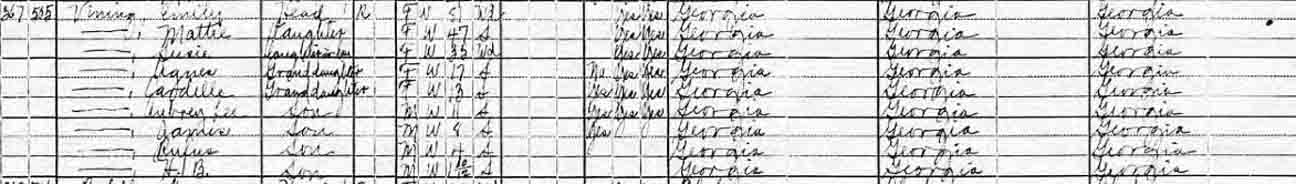 367 585 Vining, Emily Head R F W Wd Yes Yes Georgia Georgia Georgia
—, Mattie Daughter F W 47 S Yes Yes Georgia Georgia Georgia
—, Susie F W 35 Wd Yes Yes Georgia Georgia Georgia
—, Agnes Granddaughter F W 17 S No Yes Yes Georgia Georgia Georgia
—, Cardelle Granddaughter F W 13 S Yes Yes Yes Georgia Georgia Georgia
—, Aubrey Lee Son M W 11 S Yes Yes Yes Georgia Georgia Georgia
—, James Son M W 8 S Yes Georgia Georgia Georgia
—, Rufus Son M W 4 S Georgia Georgia Georgia
—, H. B. Son M W S Georgia Georgia Georgia